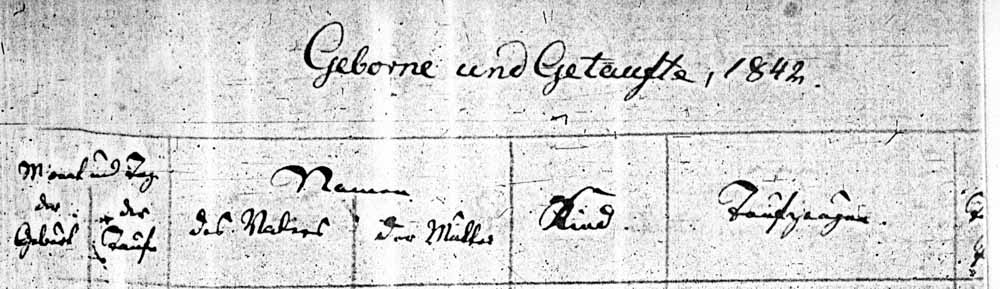 Geborne und Getaufte, 1842.
Monat und Tag
der Geburt
der Taufe
Namen
des Vaters
der Mutter
Kind.
Taufzeugen.